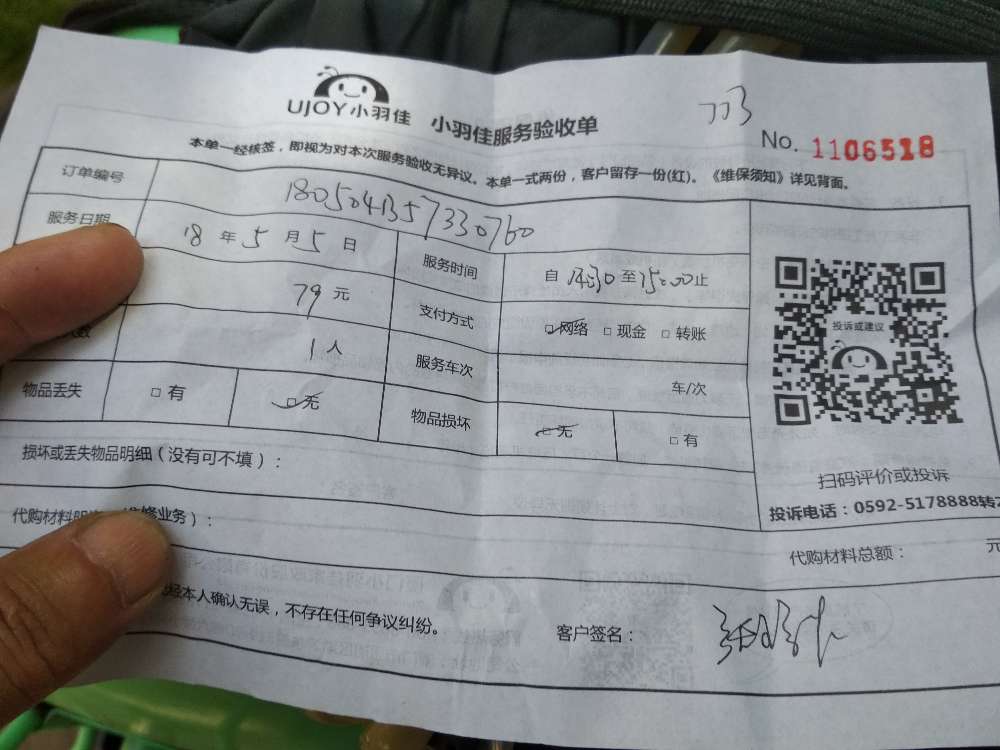 UJOY小羽佳 小羽佳服务验收单
No. 1106518
本单一经核签，即视为对本次服务验收无异议。本单一式两份，客户留存一份(红)。《维保须知》详见背面。
订单编号 1805041357330760
服务日期 18 年 5 月 5 日 服务时间 自 14:30 至 15:00 止
79 元 支付方式 □网络 □现金 □转账
人数 1 人 服务车次 车/次
物品丢失 □有 □无 物品损坏 □无 □有
投诉或建议
扫码评价或投诉
投诉电话：0592-5178888转2
损坏或丢失物品明细（没有可不填）：
代购材料明细（维修业务）：
代购材料总额： 元
经本人确认无误，不存在任何争议纠纷。
客户签名：